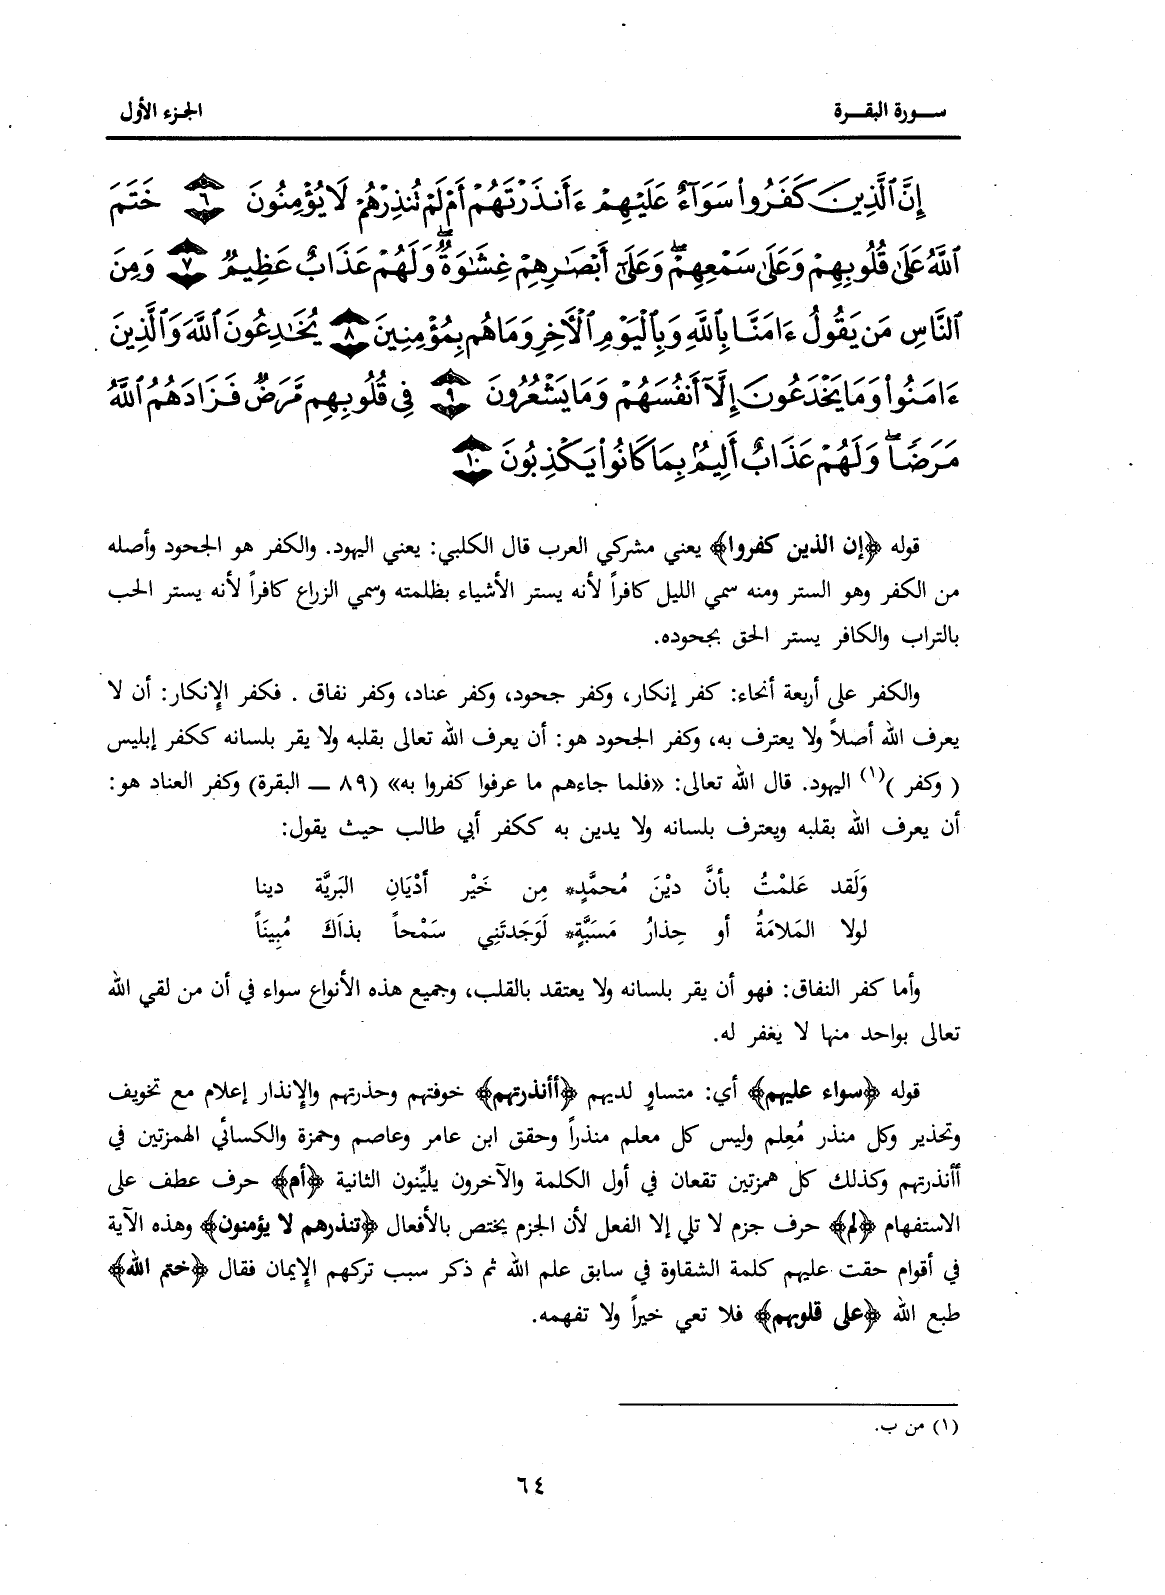 سورة البقرة
الجزء الأول
إِنَّ ٱلَّذِينَ كَفَرُوا۟ سَوَآءٌ عَلَيْهِمْ ءَأَنذَرْتَهُمْ أَمْ لَمْ تُنذِرْهُمْ لَا يُؤْمِنُونَ ٦ خَتَمَ
ٱللَّهُ عَلَىٰ قُلُوبِهِمْ وَعَلَىٰ سَمْعِهِمْ ۖ وَعَلَىٰٓ أَبْصَٰرِهِمْ غِشَٰوَةٌ ۖ وَلَهُمْ عَذَابٌ عَظِيمٌ ٧ وَمِنَ
ٱلنَّاسِ مَن يَقُولُ ءَامَنَّا بِٱللَّهِ وَبِٱلْيَوْمِ ٱلْأٓخِرِ وَمَا هُم بِمُؤْمِنِينَ ٨ يُخَٰدِعُونَ ٱللَّهَ وَٱلَّذِينَ
ءَامَنُوا۟ وَمَا يَخْدَعُونَ إِلَّآ أَنفُسَهُمْ وَمَا يَشْعُرُونَ ٩ فِى قُلُوبِهِم مَّرَضٌ فَزَادَهُمُ ٱللَّهُ
مَرَضًا ۖ وَلَهُمْ عَذَابٌ أَلِيمٌۢ بِمَا كَانُوا۟ يَكْذِبُونَ ١٠
قوله ﴿إن الذين كفروا﴾ يعني مشركي العرب قال الكلبي: يعني اليهود. والكفر هو الجحود وأصله
من الكفر وهو الستر ومنه سمي الليل كافراً لأنه يستر الأشياء بظلمته وسمي الزراع كافراً لأنه يستر الحب
بالتراب والكافر يستر الحق بجحوده.
والكفر على أربعة أنحاء: كفر إنكار، وكفر جحود، وكفر عناد، وكفر نفاق . فكفر الإنكار: أن لا
يعرف الله أصلاً ولا يعترف به، وكفر الجحود هو: أن يعرف الله تعالى بقلبه ولا يقر بلسانه ككفر إبليس
( وكفر )(١) اليهود. قال الله تعالى: «فلما جاءهم ما عرفوا كفروا به» (٨٩ ــ البقرة) وكفر العناد هو:
أن يعرف الله بقلبه ويعترف بلسانه ولا يدين به ككفر أبي طالب حيث يقول:
وَلَقد عَلمْتُ بأنَّ ديْنَ مُحمَّدٍ* مِن خَيْر أدْيَانِ البَريَّة دينا
لولا المَلامَةُ أو حِذارُ مَسَبَّةٍ* لَوَجدتَنِي سَمْحاً بذاَكَ مُبِينَاً
وأما كفر النفاق: فهو أن يقر بلسانه ولا يعتقد بالقلب، وجميع هذه الأنواع سواء في أن من لقي الله
تعالى بواحد منها لا يغفر له.
قوله ﴿سواء عليهم﴾ أي: متساوٍ لديهم ﴿أأنذرتهم﴾ خوفتهم وحذرتهم والإنذار إعلام مع تخويف
وتحذير وكل منذر مُعِلم وليس كل معلم منذراً وحقق ابن عامر وعاصم وحمزة والكسائي الهمزتين في
أأنذرتهم وكذلك كل همزتين تقعان في أول الكلمة والآخرون يليِّنون الثانية ﴿أم﴾ حرف عطف على
الاستفهام ﴿لم﴾ حرف جزم لا تلي إلا الفعل لأن الجزم يختص بالأفعال ﴿تنذرهم لا يؤمنون﴾ وهذه الآية
في أقوام حقت عليهم كلمة الشقاوة في سابق علم الله ثم ذكر سبب تركهم الإيمان فقال ﴿ختم الله﴾
طبع الله ﴿على قلوبهم﴾ فلا تعي خيراً ولا تفهمه.
(١) من ب.
٦٤